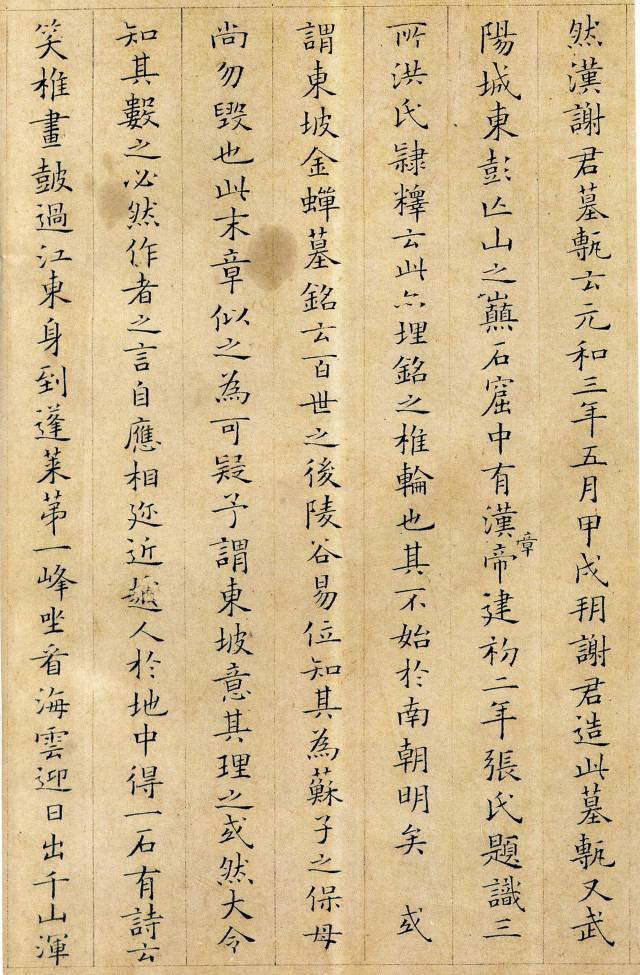 然漢謝君墓甎云元和三年五月甲戌朔謝君造此墓甎又武
陽城東彭亾山之巔石窟中有漢章帝建初二年張氏題識三
所洪氏隸釋云此亦埋銘之椎輪也其不始於南朝明矣 或
謂東坡金蟬墓銘云百世之後陵谷易位知其為蘇子之保母
尚勿毀也此末章似之為可疑予謂東坡意其理之或然大令
知其數之必然作者之言自應相迩近越人於地中得一石有詩云
笑椎畫鼓過江東身到蓬萊第一峰坐看海雲迎日出千山渾